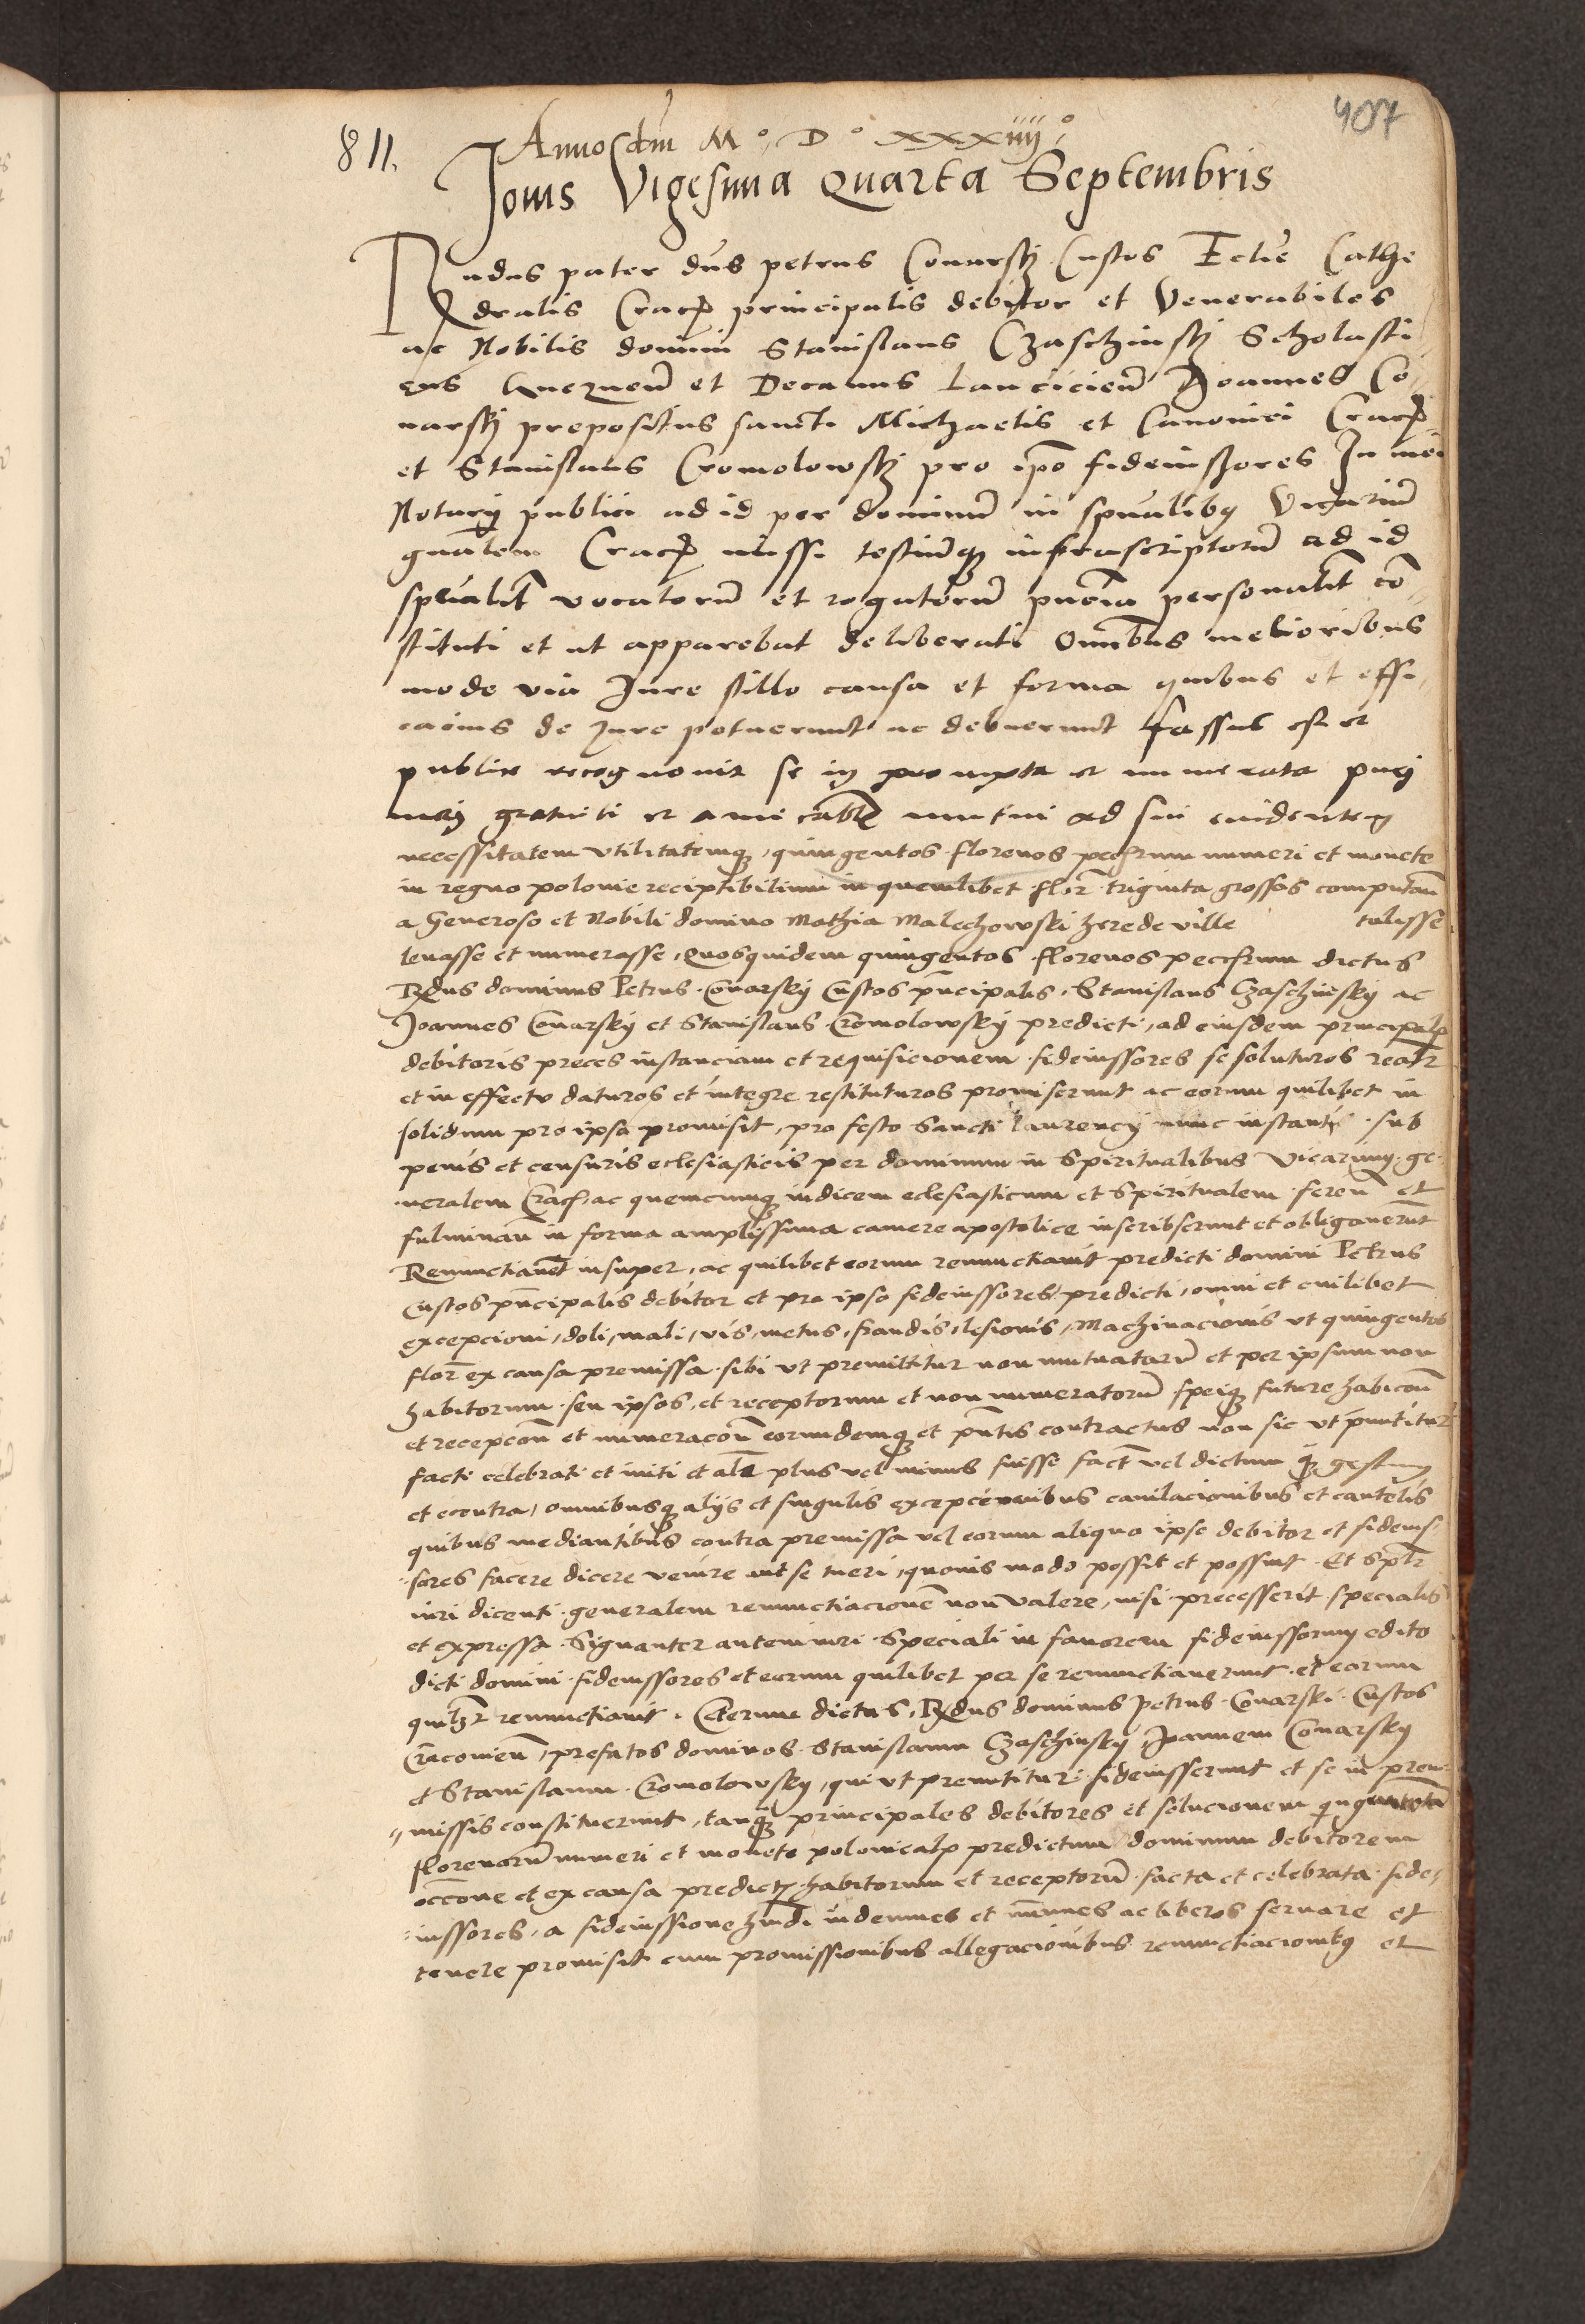 407
811.
Anno dni M° D° xxxiiij°
Jovis Vigesima Quarta Septembris
Rndus pater dns petrus Conarsky Custos Eclie Cathe
dralis Crac principalis debitor et Venerabiles
ac Nobilis domini Stanislaus Czaschinsky Scholasti
cus et Decanus Lancicien Joannes Co
narsky prepositus sancti Michaelis et Canonici Crac
et Stanislaus Cromolowsky pro ipo fideiussores In mei
Notarij publici ad id per dominum in spualibus Vicarium
gnalem Crac missi testiumque infrascriptorum ad id
specialit vocatorum et rogatorum pncia personalit con
stituti et ut apparebat deliberati Omnibus melioribus
modo via Jure stillo causa et forma quibus et effi
cacius de Jure potuerunt ac debuerunt fassus est et
publice recognovit se in prompta et numerata
gratuiti et amicabile mutui ad sui evidentem
necessitatem utilitatemque quingentos florenos numeri et monete
in regno polonie receptibilium in quemlibet flor triginta grossos computan
a Generoso et Nobili domino Mathia Malechowski herede ville tulisse
levasse et numerasse, Quosquidem quingentos florenos dictus
Rndus dominus Petrus Conarsky Custos pncipalis, Stanislaus Czaschinsky ac
Joannes Conarsky et Stanislaus Cromolowsky predicti, ad eiusdem principalis
debitoris preces instanciam et requisicionem fideiussores se soluturos realr
et in effectu daturos et integre restituturos promiserunt ac eorum quilibet in
solidum pro ipso promisit, pro festo Sancti Laurencij nunc instanti sub
penis et censuris eclesiasticis per dominum in Spiritualibus Vicarium ge
neralem Crac, ac quemcumque iudicem eclesiasticum et Spiritualem feren et
fulminan in forma amplissima camere apostolice inscribserunt et obligaverunt
Renunctiavert insuper, ac quilibet eorum renunctiavit predicti domini Petrus
Custos pncipalis debitor et pro ipso fideiussores predicti, omni et cuilibet
excepcioni, doli, mali, vis, metus, fraudis, lesionis, Machinacionis ut quingentos
flor ex causa premissa sibi ut premittitur non mutuatorum et per ipsum non
habitorum seu ipsos, et receptorum et non numeratorum speique future habicon
et recepcon et numeracon eorundemque et pntis contractus non sic ut pmittitur
facti celebrati et initi et als plus vel minus fuisse fact vel dictum quam gestum
et econtra, omnibusque alijs et singulis excepcionibus cavilacionibus et cautelis
quibus mediantibus contra premissa vel eorum aliquo ipse debitor et fideius
sores facere dicere venire aut se tueri, quovis modo possit et possint. Et
iuri dicenti generalem renunctiacionem non valere, nisi precesserit specialis
et expressa Signanter autem iuri Speciali in favorem fideiussorum edito
dicti domini fideiussores et eorum quilibet per se renunctiaverunt et eorum
quilbt renunctiavit. Ceterum dictus, Rndus dominus Petrus Conarski Custos
Cracovien, prefatos dominos Stanislaum Czaschinsky, Joannem Conarsky
et Stanislaum Cromolowsky, qui ut premittitur fideiusserunt et se in pre
missis constituerunt, tanquam principales debitores et solucionem
florenorum numeri et monete polonicalis predictum dominum debitorem
occone et ex causa predict habitorum et receptorum facta et celebrata fide
iussores, a fideiussione hmdi indemnes et ac liberos servare et
tenere promisit cum promissionibus allegacionibus renunctiacionibus et